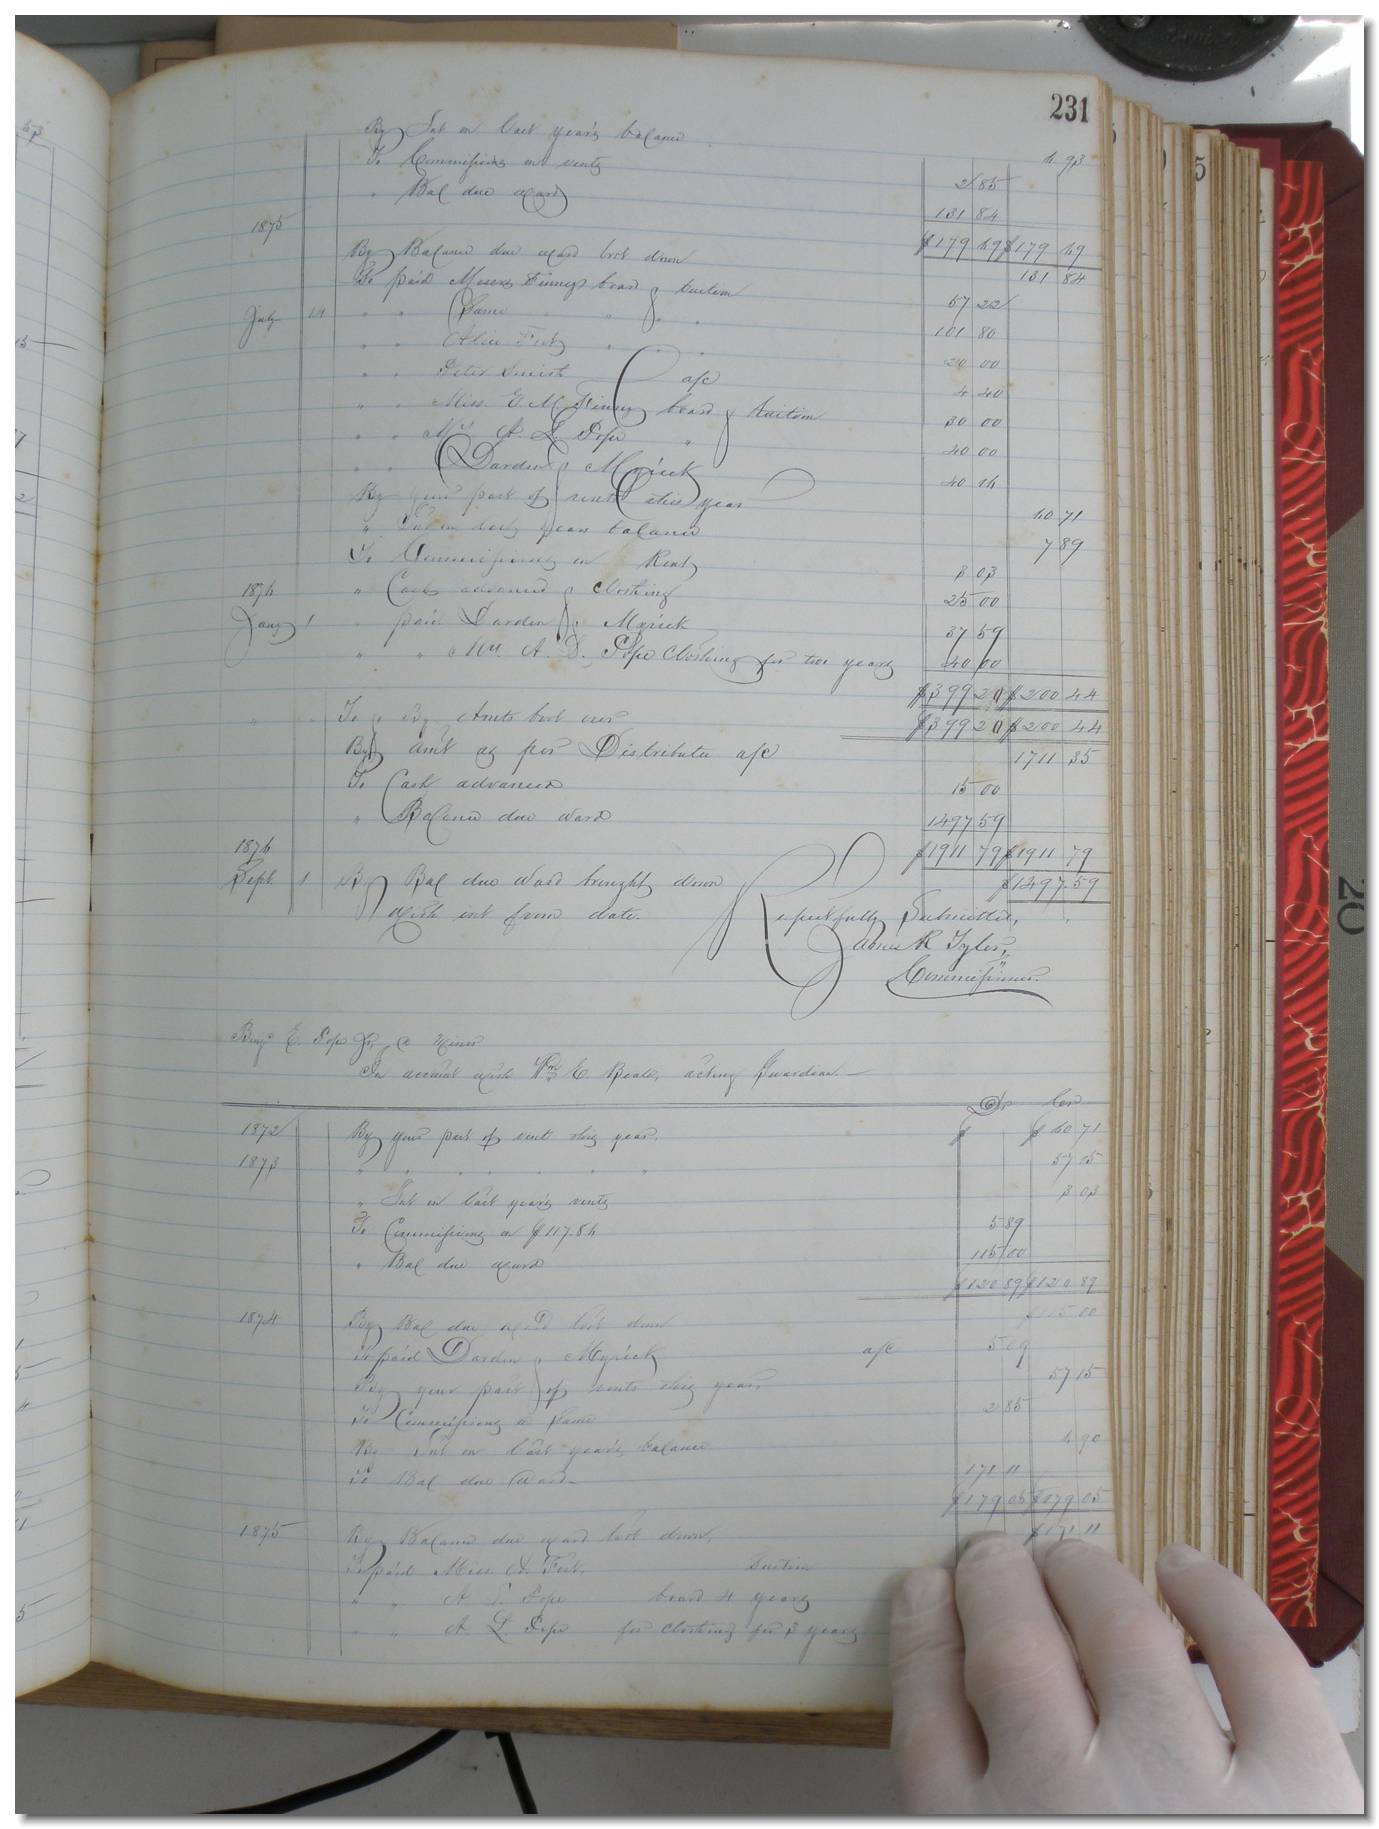 231
By Int on last year's balance 6 93
To Commissions on rents 2 85
" Bal due ward 131 84
$179 69 $179 69
1875
By Balance due ward brot down 131 84
To paid Misses Finneys board & tuition 57 22
July 14 " " Same " " " 101 80
" " Alice Fort " " " 20 00
" " Peter Smith a/c 4 40
" " Miss. E. M. Finney board & tuition 30 00
" " Mrs A. L. Pope " 40 00
" " Darden & Myrick 40 16
By your part of rents this year 60 71
" Int on last years balance 7 89
To Commissions on Rents 3 03
1876 " Cash advanced & clothing 25 00
Jany 1 " paid Darden & Myrick 37 59
" " Mrs. A. L. Pope Clothing for two years 40 00
$399 20 $200 44
To & By Amts brot over $399 20 $200 44
By amt as per Distributee a/c 1711 35
To Cash advanced 15 00
" Balance due Ward 1497 59
$1911 79 $1911 79
1876
Sept. 1 By Bal due Ward brought down $1497.59
with int from date.
Respectfully Submitted,
James R Tyler,
Commissioner.
Benj. E. Pope Jr, a Minor
In account with Wm E. Beale, acting Guardian
Dr Cr
1872 By your part of rent this year. $ $60 71
1873 " " " " " " " 57 15
" Int on last year's rents 3 03
To Commissions on $117.86 5 89
" Bal due ward 115 00
$120 89 $120 89
1874 By Bal due ward brot down $115 00
To paid Darden & Myrick a/c 5 09
By your part of rents this year, 57 15
To Commissions on Same 2 85
By Int on last year's balance 6 90
To Bal due Ward 171 11
$179 05 $179 05
1875 By Balance due ward brot down, $171 11
To paid Miss A. Fort, tuition
" " A. L. Pope board 4 years
" " A. L. Pope for clothing for 3 years